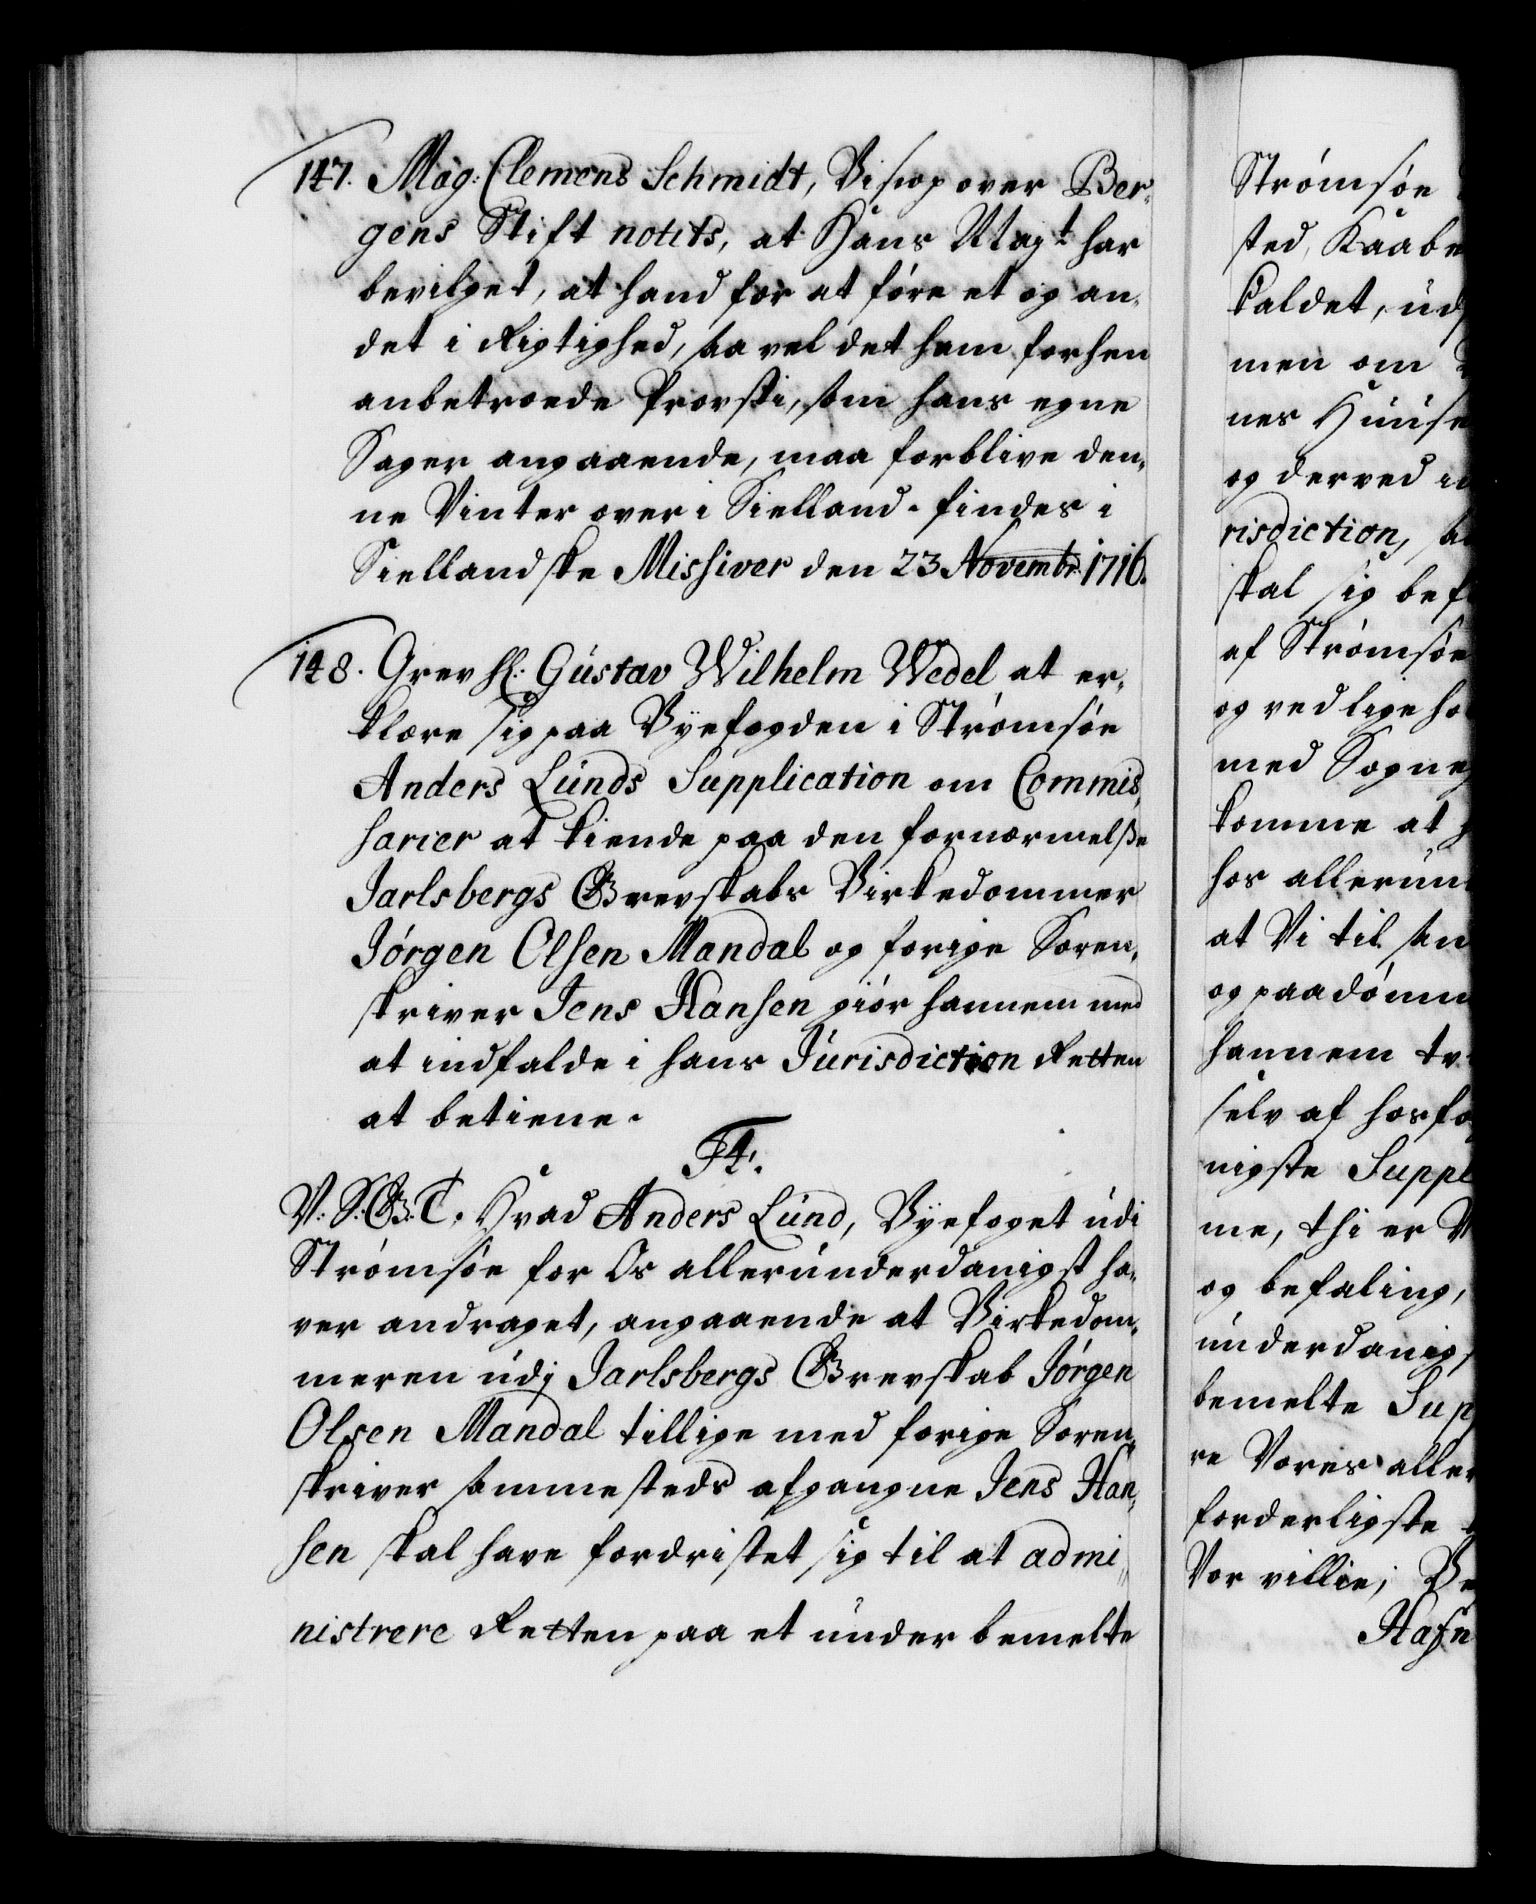 147. Mag: Clemens Schmidt, Bisxop over Ber-
gens Stift notits, at Hans Mayt har
bevilget, at hand for at føre et og an-
det i Rigtighed, saa vel det ham forhen
anbetroede Provsti, som hans egne
Sager angaaende, maa forblive den-
ne Vinter over i Sielland. findes i
Siellandske Missiver den 23 Novembr: 1716.
148. Grev Hl: Gustav Wilhelm Wedel at er-
klære sig paa Byefogden i Strømsøe
Anders Lunds Supplication om Commis-
sarier at kiende paa den fornærmelsse
Jarlsbergs Grevskabs Birkedommer
Jørgen Olsen Mandal og forige Soren-
skriver Jens Hansen giør hannem med
at indfalde i hans Jurisdiction Retten
at betiene.
F4.
V: S: G: T. Hvad Anders Lund, Byefoget udi
Strømsøe for Os allerunderdanigst ha-
ver andraget, angaaende at Birkedom-
meren udj Jarlsbergs Grevskab Jørgen
Olsen Mandal tillige med forige Soren-
skriver sammesteds afgangne Jens Han-
sen skal have fordristet sig til at admi-
nistrere Retten paa et under bemelte
Strømsøe
sted, Kaabe
kaldet, ud
men om
nes Huuse
og derved i
risdiction, sa
skal sig bef
af Strømsøe
og ved lige ho
med Sogne
komme at
hos allerun
at Vi til san
og paadømm
hannem tv
selv af hosfo
nigste Suppl
me, thi er V
og befaling,
underdanig
bemelte Sup
re Vores aller
forderligste
Vor villie; Be
Hafn